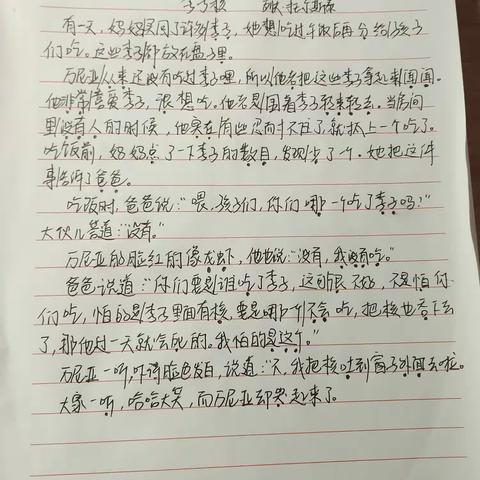 李子核 列夫·托尔斯泰
有一天，妈妈买回了许多李子，她想吃过午饭后再分给孩子
们吃。这些李子都放在盘子里。
万尼亚从来还没有吃过李子哩，所以他老把这些李子拿起来闻闻。
他非常喜爱李子，很想吃。他老是围着李子转来转去。当房间
里没有人的时候，他实在有些忍耐不住了，就抓上一个吃了。
吃饭前，妈妈点了一下李子的数目，发现少了一个。她把这件
事告诉了爸爸。
吃饭时，爸爸说："喂，孩子们，你们哪一个吃了李子吗？"
大伙儿答道："没有。"
万尼亚的脸红的像龙虾，他也说："没有，我没有吃。"
爸爸说道："你们要是谁吃了李子，这可很不好，不是怕你
们吃，怕的是李子里面有核，要是哪个不会吃，把核也吞下去
了，那他过一天就会死的。我怕的是这个。"
万尼亚一听，吓得脸色发白，说道："不，我把核吐到窗子外面去啦。
大家一听，哈哈大笑，而万尼亚却哭起来了。